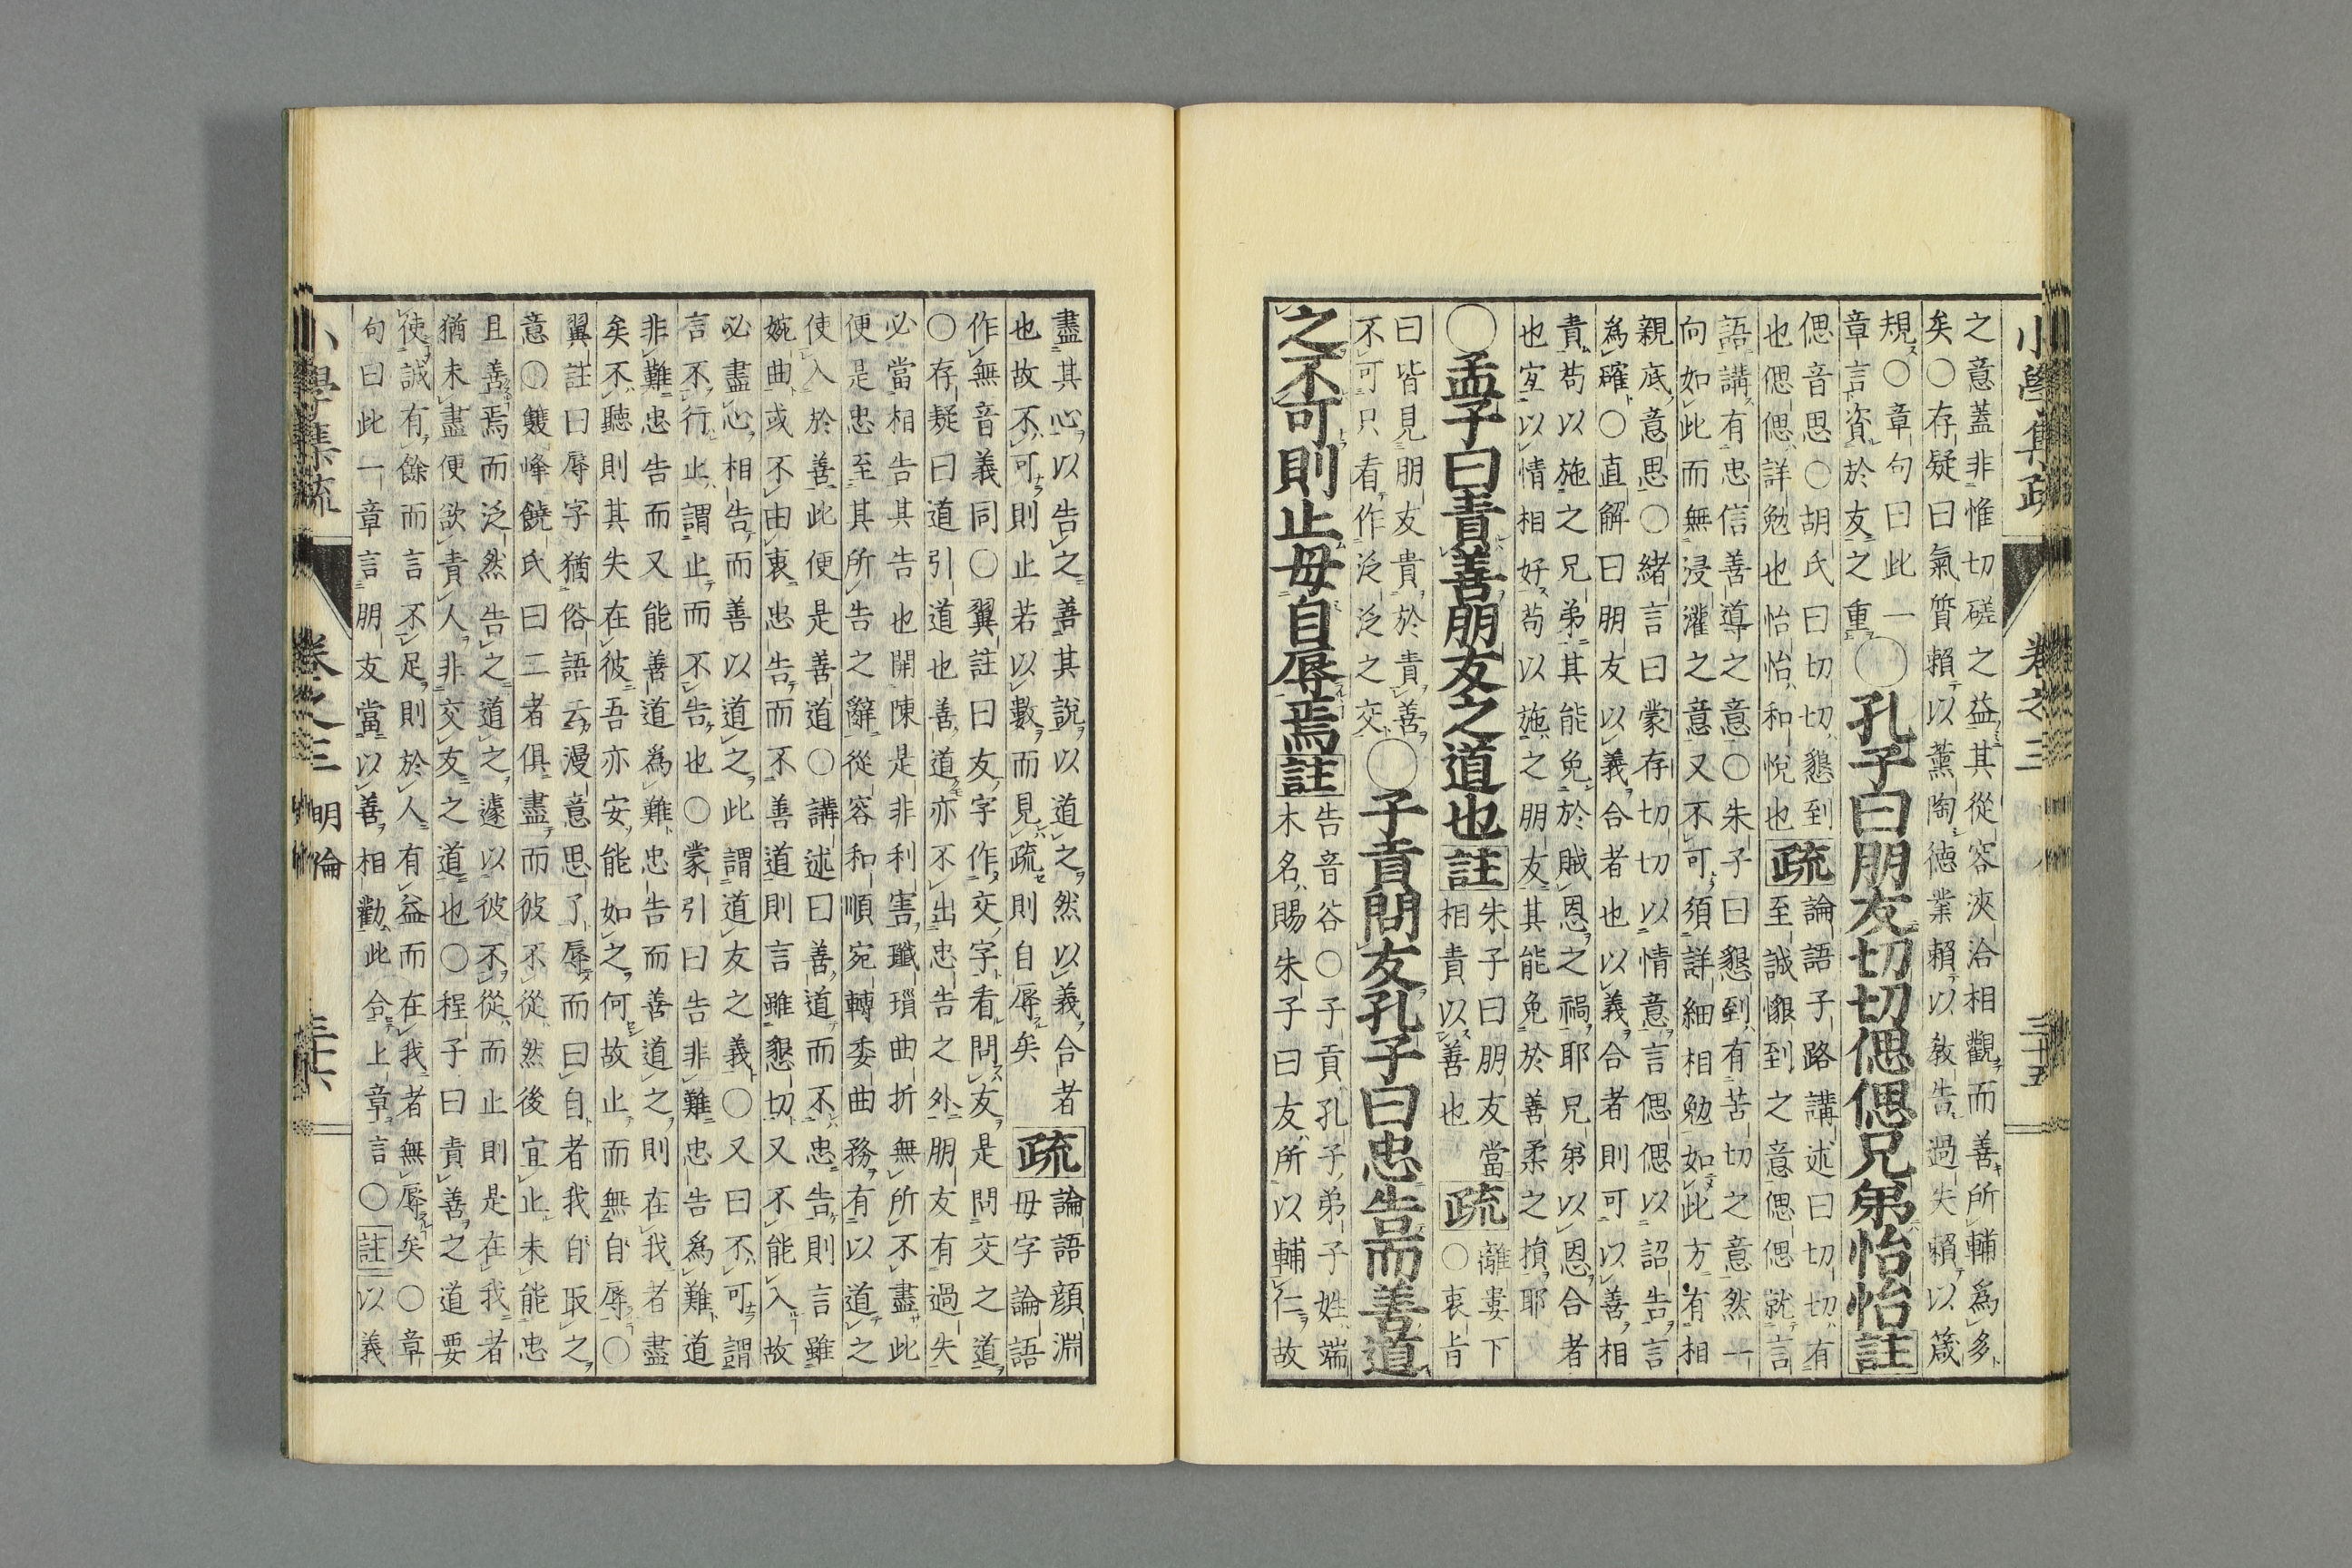 小學集疏 卷之三 三十五
之意蓋非惟切磋之益其從容浹洽相觀而善所輔為多
矣○存疑曰氣質賴以薰陶德業賴以敎告過失賴以箴
規○章句曰此一
章言資於友之重
○孔子曰朋友切切偲偲兄弟怡怡註
偲音思○胡氏曰切切懇到
也偲偲詳勉也怡怡和悅也
疏
論語子路講述曰切切有
至誠懇到之意偲偲就言
語講有忠信善導之意○朱子曰懇到有苦切之意然一
向如此而無浸灌之意又不可須詳細相勉如此方有相
親底意思○緒言曰蒙存切切以情意言偲偲以詔告言
為確○直解曰朋友以義合者也以義合者則可以善相
責苟以施之兄弟其能免於賊恩之禍耶兄弟以恩合者
也宜以情相好苟以施之朋友其能免於善柔之損耶
○孟子曰責善朋友之道也註
朱子曰朋友當
相責以善也
疏
離婁下
○衷旨
曰皆見朋友貴於責善
不可只看作泛泛之交
○子貢問友孔子曰忠告而善道
之不可則止毋自辱焉註
告音谷○子貢孔子弟子姓端
木名賜朱子曰友所以輔仁故
盡其心以告之善其說以道之然以義合者
也故不可則止若以數而見疏則自辱矣
疏
論語顏淵
毋字論語
作無音義同○翼註曰友字作交字看問友是問交之道
○存疑曰道引道也善道亦不出忠告之外朋友有過失
必當相告其告也開陳是非利害纖瑣曲折無所不盡此
便是忠至其所告之辭從容和順宛轉委曲務有以道之
使入於善此便是善道○講述曰善道而不忠告則言雖
婉曲或不由衷忠告而不善道則言雖懇切又不能入故
必盡心相告而善以道之此謂道友之義○又曰不可謂
言不行止謂止而不告也○蒙引曰告非難忠告為難道
非難忠告而又能善道為難忠告而善道之則在我者盡
矣不聽則其失在彼吾亦安能如之何故止而無自辱○
翼註曰辱字猶俗語云漫意思了辱而曰自者我自取之
意○雙峰饒氏曰二者俱盡而彼不從然後宜止未能忠
且善焉而泛然告之道之遽以彼不從而止則是在我者
猶未盡便欲責人非交友之道也○程子曰責善之道要
使誠有餘而言不足則於人有益而在我者無辱矣○章
句曰此一章言朋友當以善相勸此合上章言○註以義
小學集疏 卷之三 明倫 三十六